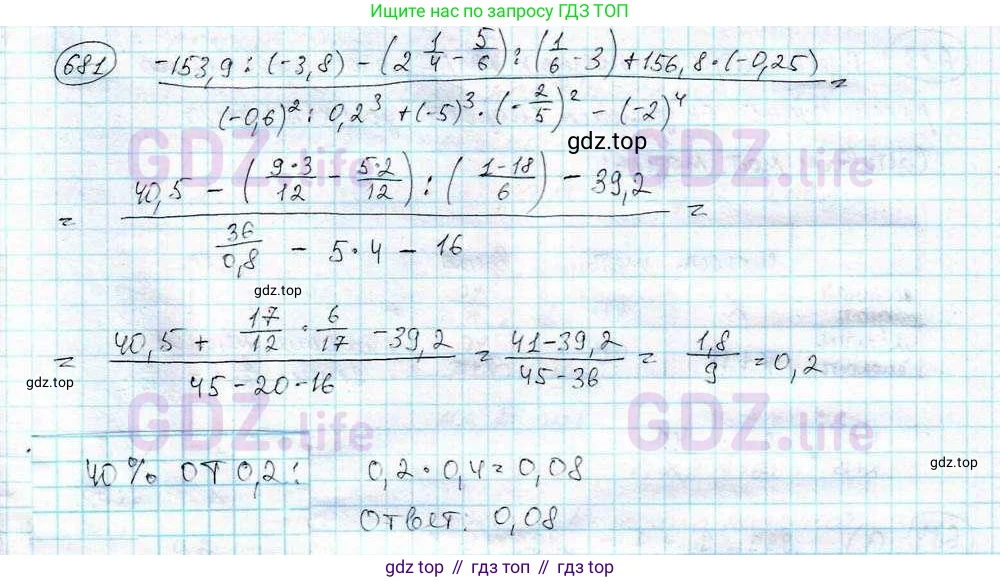 Ищите ответ по запросу ГДЗ ТОП
681 -153,9 : (-3,8) - (2 1/4 - 5/6) : (1/6 - 3) + 156,8 · (-0,25) =
(-0,6)² : 0,2³ + (-5)³ · (-2/5)² - (-2)⁴
gdz.top
GDZ.life GDZ.life
= 40,5 - (9·3/12 - 5·2/12) : (1-18/6) - 39,2 =
36/0,8 - 5·4 - 16
gdz.top
= 40,5 + 17/12 · 6/17 - 39,2 = 41-39,2 = 1,8/9 = 0,2
45-20-16 45-36
gdz.top
GDZ.life GDZ.life
40% от 0,2: 0,2 · 0,4 = 0,08
gdz.top
Ответ: 0,08
gdz.top // гдз топ // гдз.топ